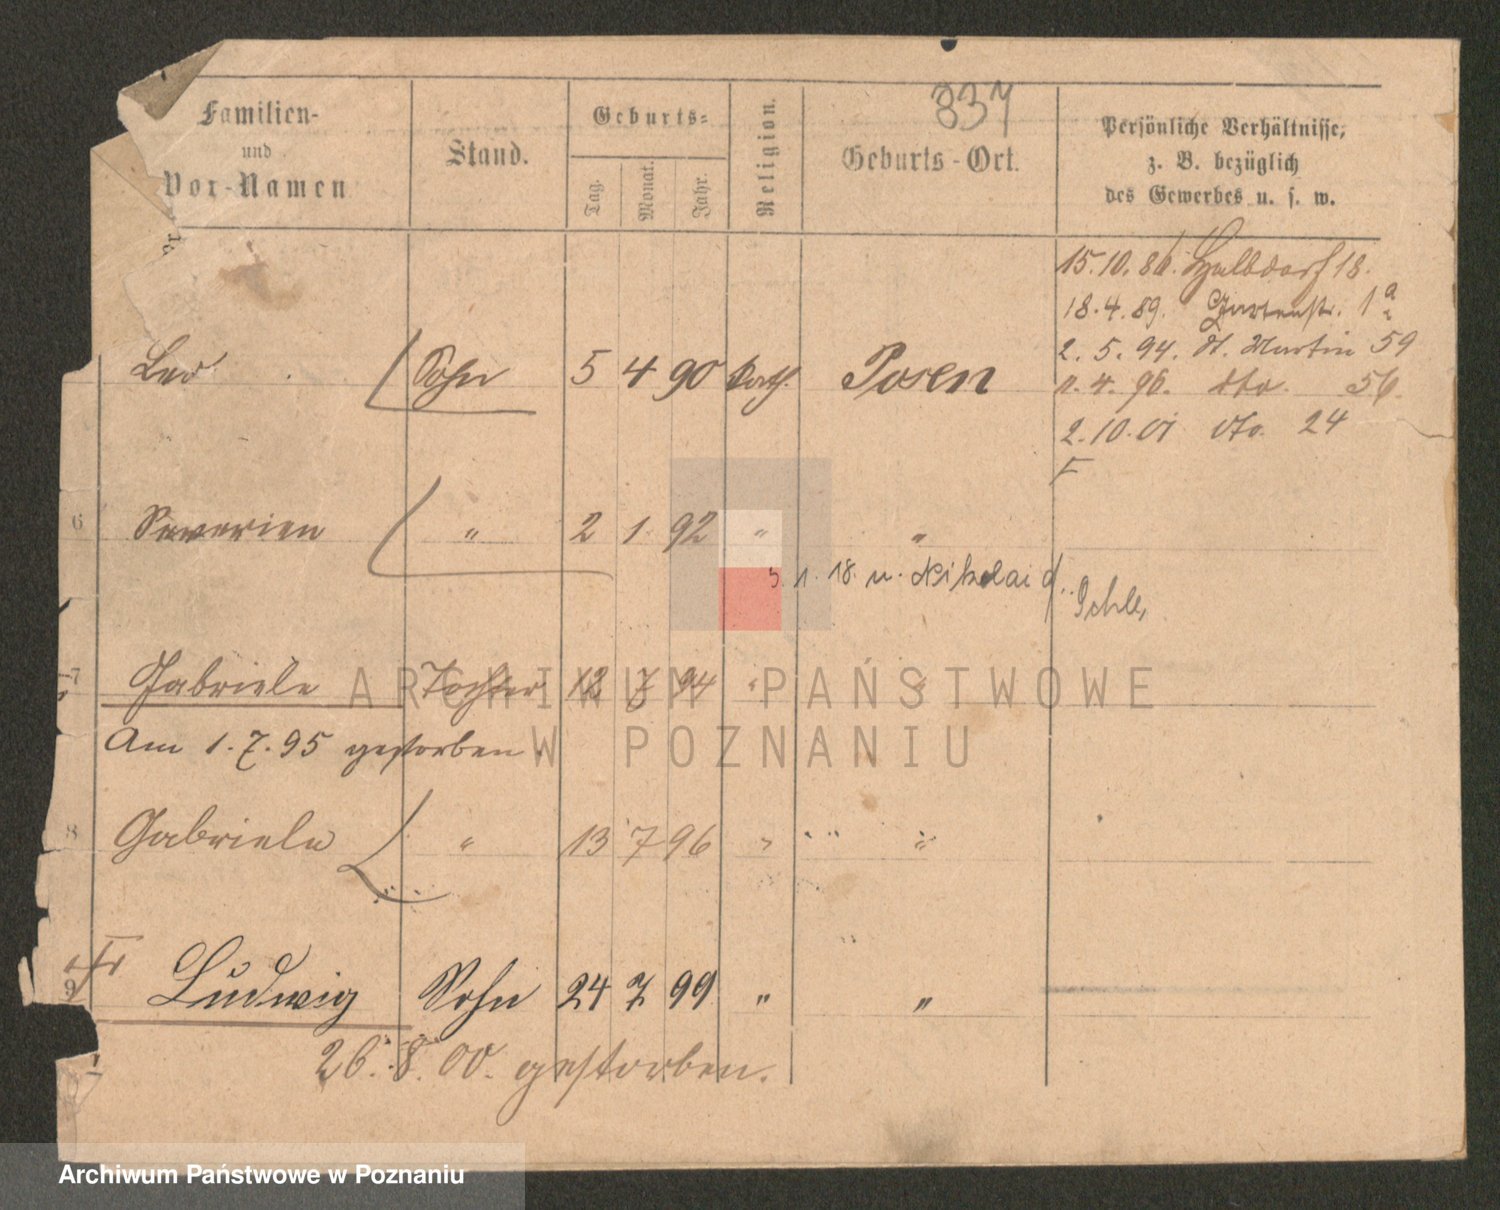 837
Familien-
und
Vor-Namen
Stand.
Geburts-
Tag.
Monat.
Jahr.
Religion.
Geburts-Ort.
Persönliche Verhältnisse,
z. B. bezüglich
des Gewerbes u. s. w.
15.10.86. Halbdorf 18.
18.4.89. Gartenstr. 1a
2.5.94. St. Martin 59
1.4.96. dto. 56.
2.10.01 dto. 24
Leo Sohn 5 4 90 kath. Posen
6 Severien " 2 1 92 " "
5.1.18. n. Nikolai
7 Gabriele Tochter 12 7 94 " "
Am 1.7.95 gestorben.
8 Gabriele " 13 7 96 " "
9 Ludwig Sohn 24 7 99 " "
26.8.00. gestorben.
ARCHIWUM PAŃSTWOWE
W POZNANIU
Archiwum Państwowe w Poznaniu